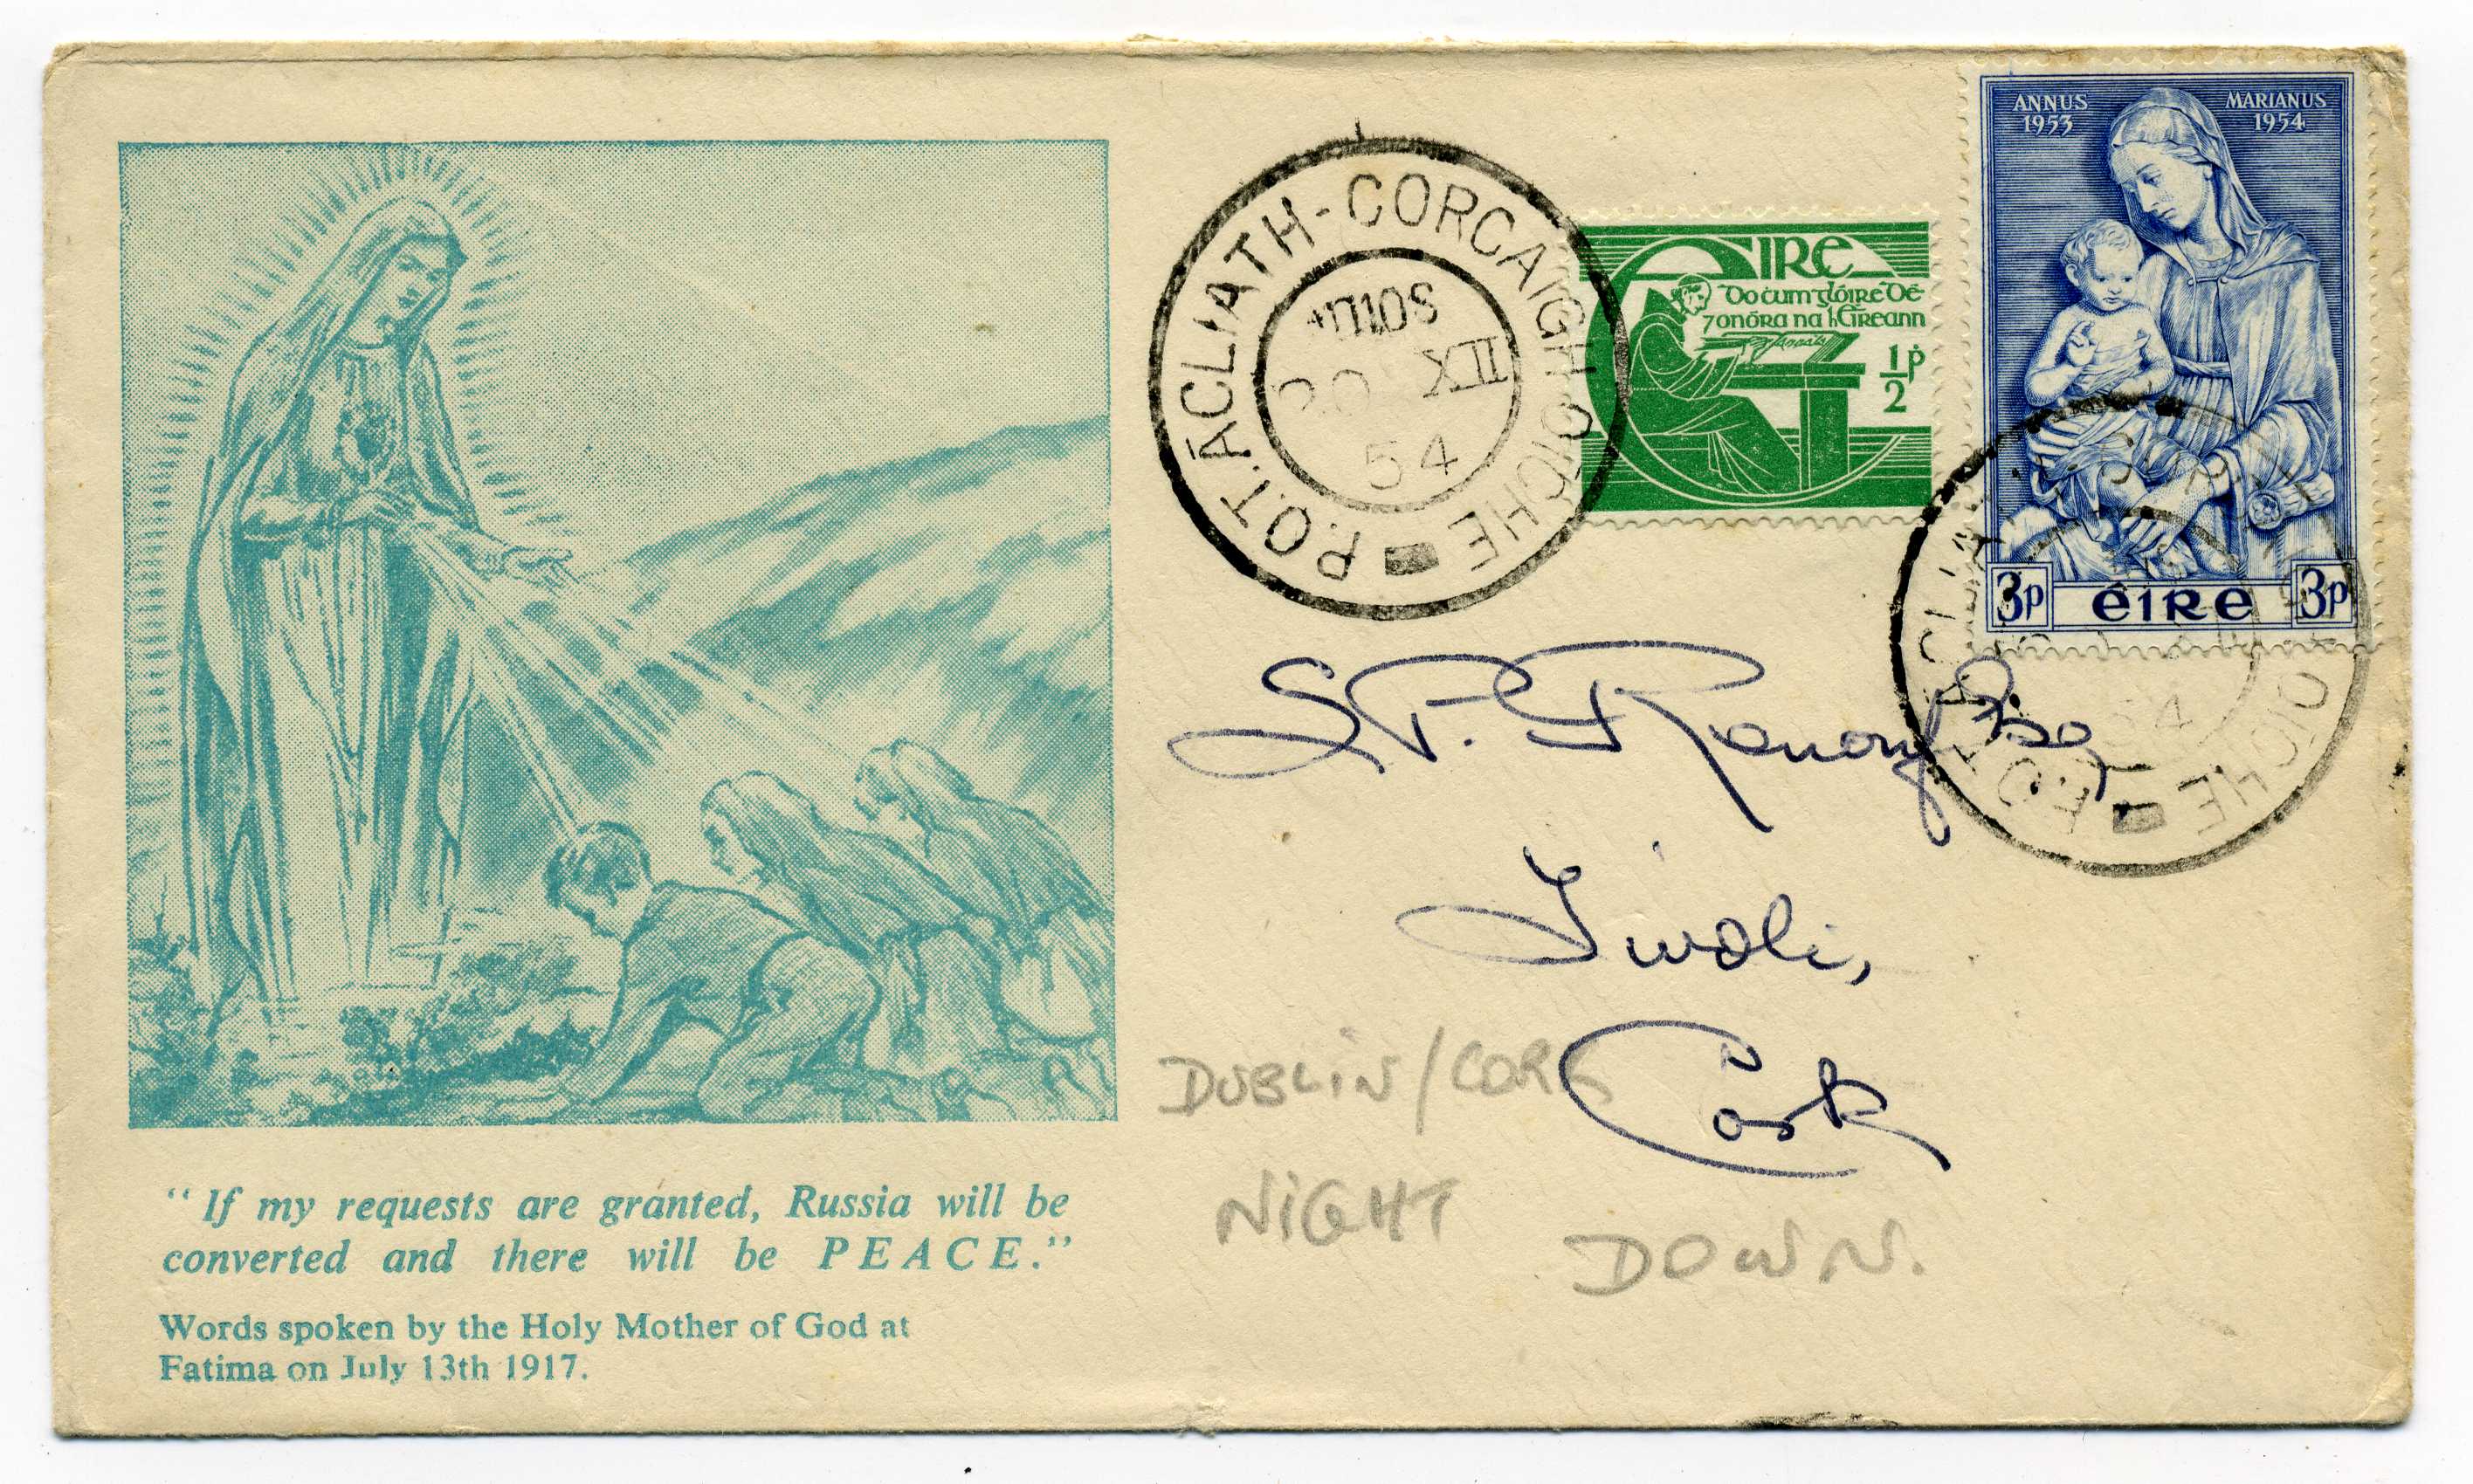 P.O.T. ĀCLIATH-CORCAIGH OIĊHE
20 XII
54
ÉIRE
Do ċum glóire Dé
⁊ onóra na hÉireann
½p
ANNUS MARIANUS
1953 1954
3p ÉIRE 3p
OICHE
54
S.P.
Esq
Tivoli,
Cork
DUBLIN/CORK
NIGHT
DOWN.
"If my requests are granted, Russia will be
converted and there will be PEACE."
Words spoken by the Holy Mother of God at
Fatima on July 13th 1917.